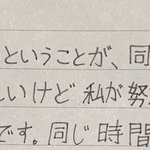 ということが、同
しいけど 私が努
です。同じ時間